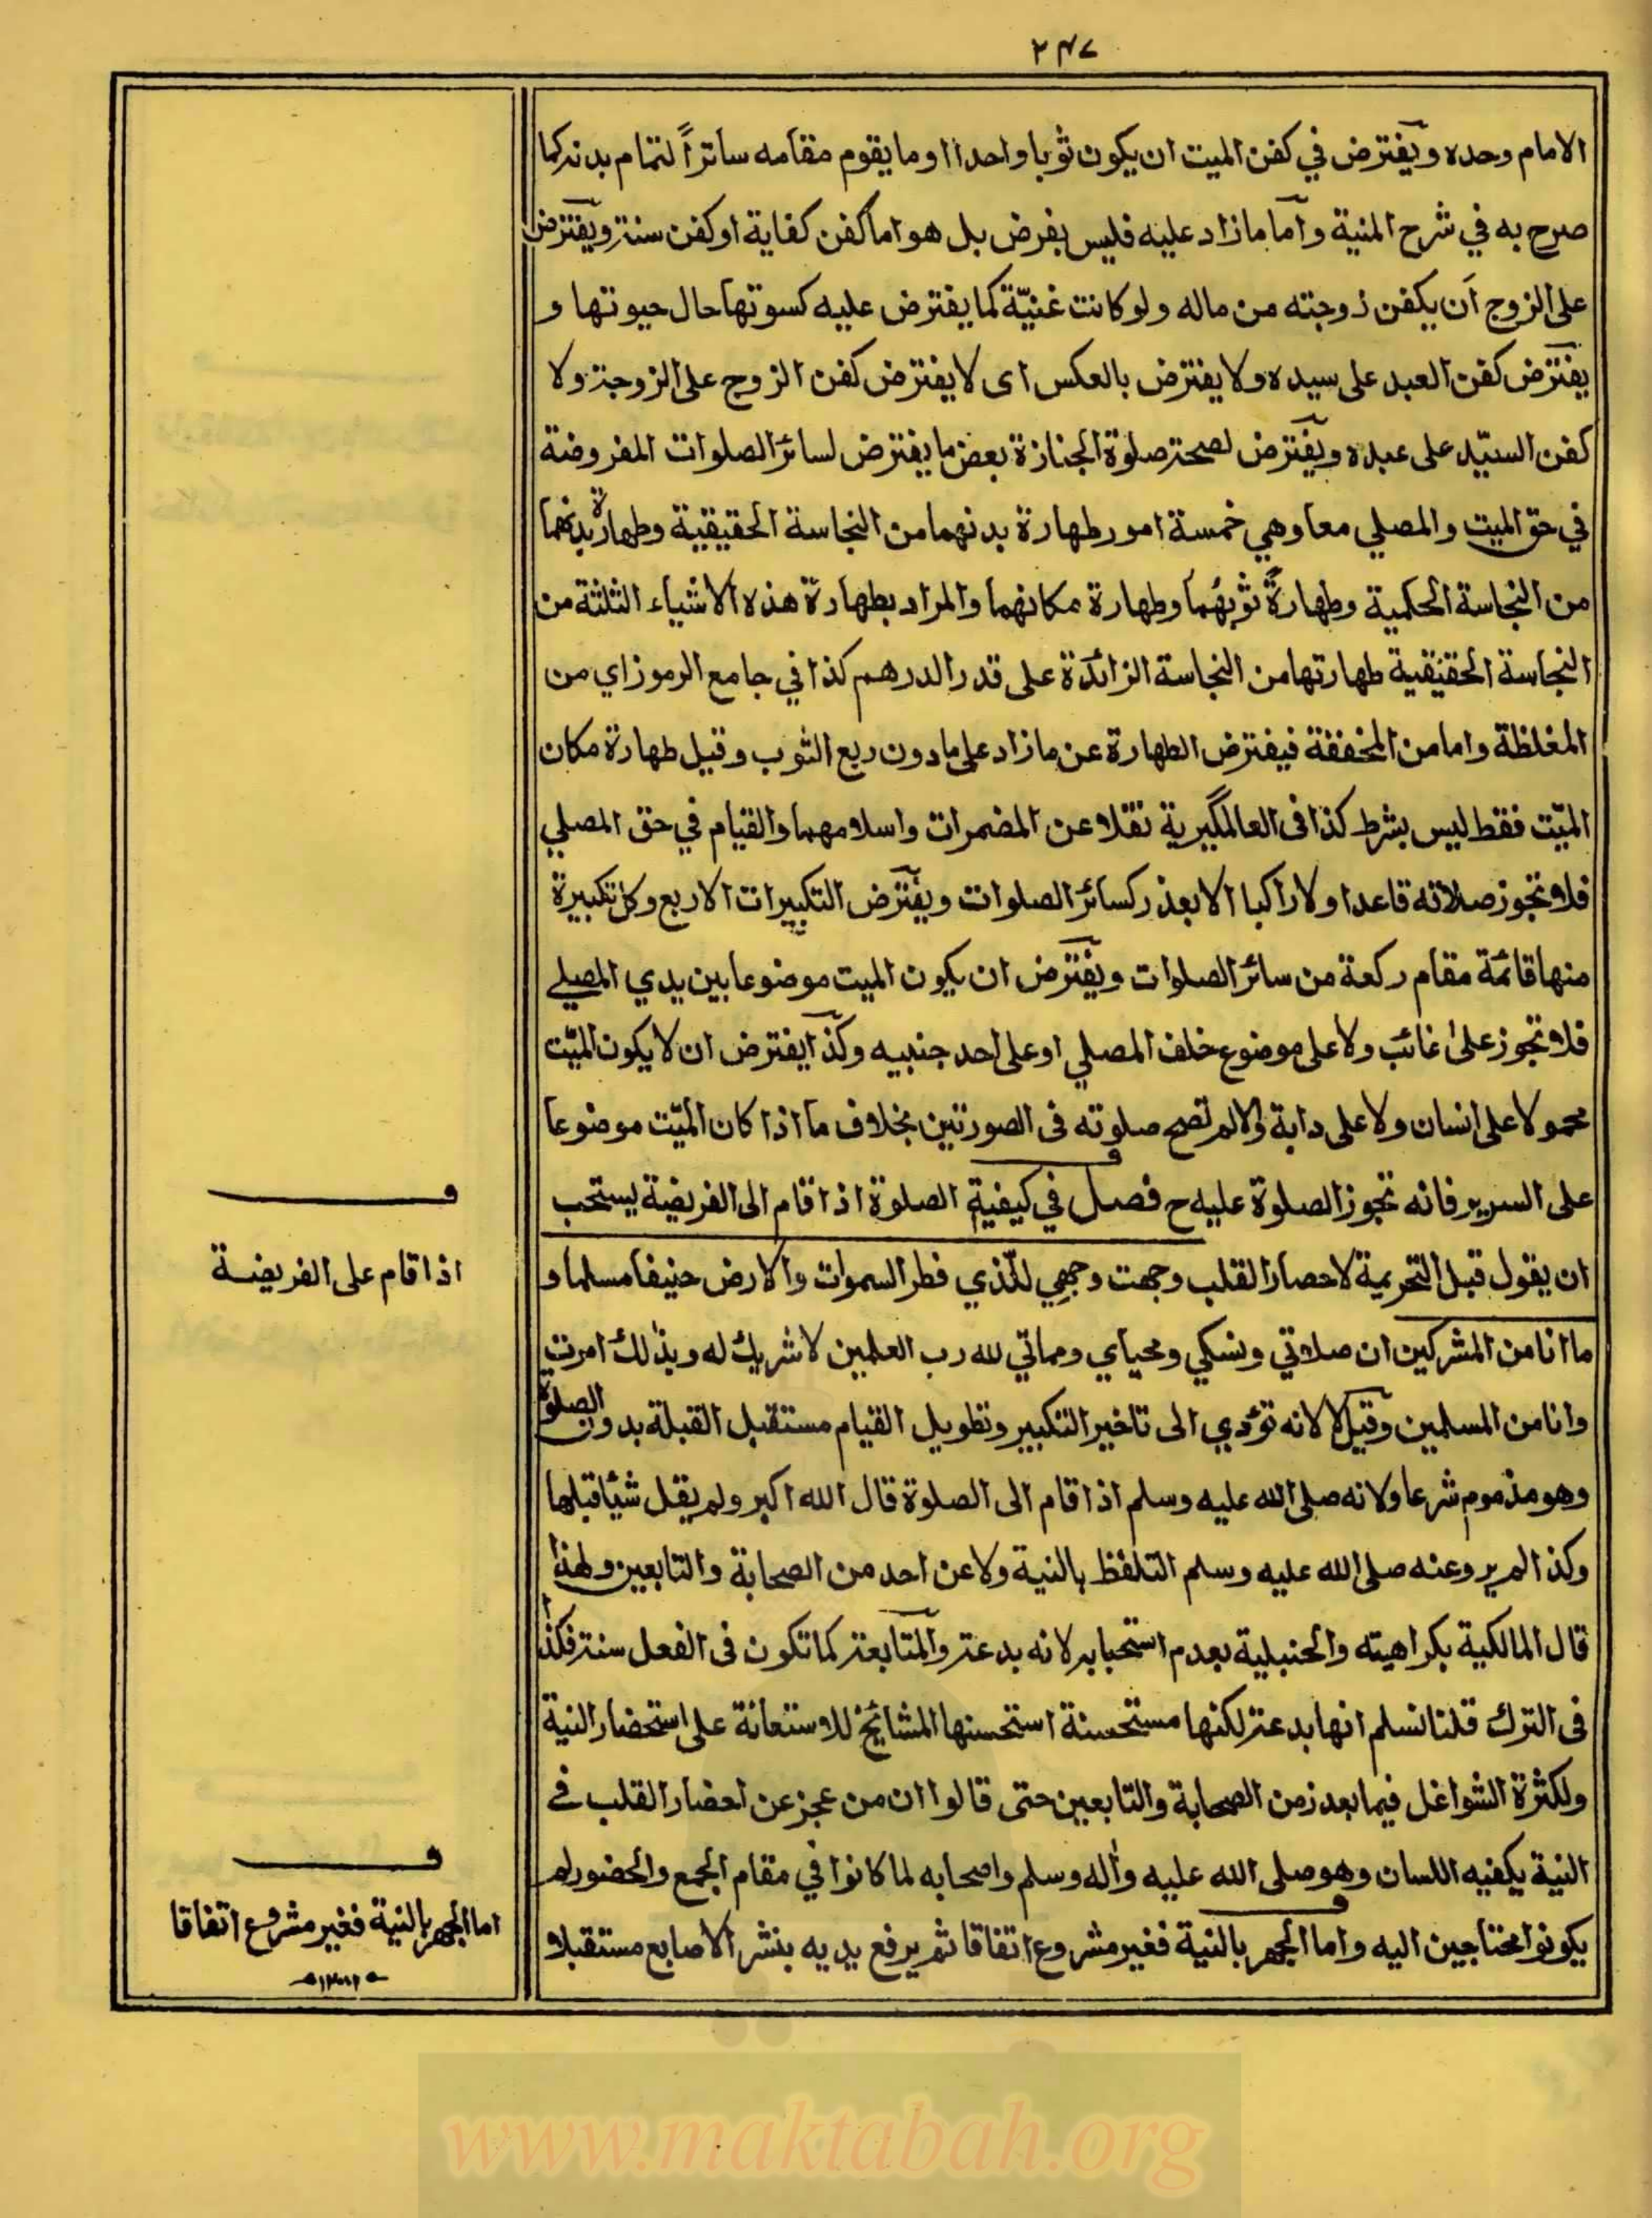 ٢٤٧
الامام وحده ويفترض في كفن الميت ان يكون ثوبا واحدا او ما يقوم مقامه ساتراً لتمام بدنه كما
صرح به في شرح المنية واما ما زاد عليه فليس بفرض بل هو اما كفن كفاية او كفن سنة ويفترض
على الزوج ان يكفن زوجته من ماله ولو كانت غنيّة كما يفترض عليه كسوتها حال حيوتها و
يفترض كفن العبد على سيده ولا يفترض بالعكس اى لا يفترض كفن الزوج على الزوجة ولا
كفن السيّد على عبده ويفترض لصحة صلوة الجنازة بعض ما يفترض لسائر الصلوات المفروضة
في حق الميت والمصلي معا وهي خمسة امور طهارة بدنهما من النجاسة الحقيقية وطهارة بدنهما
من النجاسة الحكمية وطهارة ثوبهما وطهارة مكانهما والمراد بطهارة هذه الاشياء الثلثة من
النجاسة الحقيقية طهارتها من النجاسة الزائدة على قدر الدرهم كذا في جامع الرموز اي من
المغلظة واما من المخففة فيفترض الطهارة عن ما زاد على ما دون ربع الثوب وقيل طهارة مكان
الميّت فقط ليس بشرط كذا فى العالمگيرية نقلا عن المضمرات واسلامهما والقيام في حق المصلي
فلا تجوز صلاته قاعدا ولا راكبا الا بعذر كسائر الصلوات ويفترض التكبيرات الاربع وكل تكبيرة
منها قائمة مقام ركعة من سائر الصلوات ويفترض ان يكون الميت موضوعا بين يدي المصلي
فلا تجوز على غائب ولا على موضوع خلف المصلي او على احد جنبيه وكذا يفترض ان لا يكون الميّت
محمولا على انسان ولا على دابة والا لم تصح صلوته فى الصورتين بخلاف ما اذا كان الميّت موضوعا
على السرير فانه تجوز الصلوة عليه ح فصل في كيفية الصلوة اذا قام الى الفريضة يستحب
ان يقول قبل التحريمة لاحضار القلب وجهت وجهي للّذي فطر السموات والارض حنيفا مسلما و
ما انا من المشركين ان صلاتي ونسكي ومحياي ومماتي لله رب العلمين لا شريك له وبذلك امرت
وانا من المسلمين وقيل لا لانه تؤدي الى تاخير التكبير وتطويل القيام مستقبل القبلة بدون الصلوة
وهو مذموم شرعا ولانه صلى الله عليه وسلم اذا قام الى الصلوة قال الله اكبر ولم يقل شيئا قبلها
وكذا لم يرو عنه صلى الله عليه وسلم التلفظ بالنية ولا عن احد من الصحابة والتابعين ولهذا
قال المالكية بكراهيته والحنبلية بعدم استحبابه لانه بدعة والمتابعة كما تكون فى الفعل سنة فكذا
فى الترك قلنا نسلم انها بدعة لكنها مستحسنة استحسنها المشائخ للاستعانة على استحضار النية
ولكثرة الشواغل فيما بعد زمن الصحابة والتابعين حتى قالوا ان من عجز عن احضار القلب في
النية يكفيه اللسان وهو صلى الله عليه واله وسلم واصحابه لما كانوا في مقام الجمع والحضور لم
يكونوا محتاجين اليه واما الجهر بالنية فغير مشروع اتفاقا ثم يرفع يديه بنشر الاصابع مستقبلا
اذا قام على الفريضة
اما الجهر بالنية فغير مشروع اتفاقا
www.maktabah.org